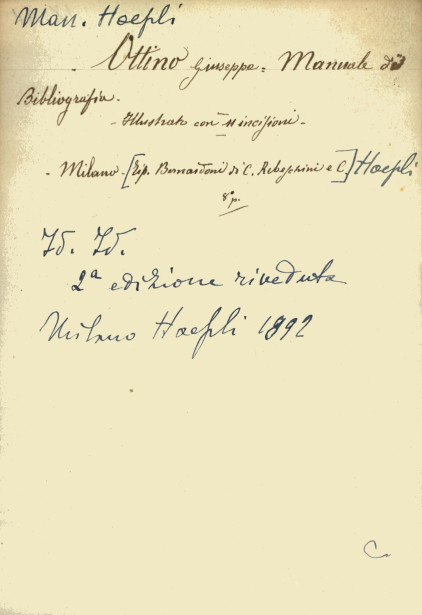 Man. Hoepli
Ottino Giuseppe = Manuale di
Bibliografia.
- Illustrato con 11 incisioni -
- Milano - [Tip. Bernardoni di C. Rebeschini e C.] Hoepli
8º p.
Id. Id.
2ª edizione riveduta
Milano Hoepli 1892
C